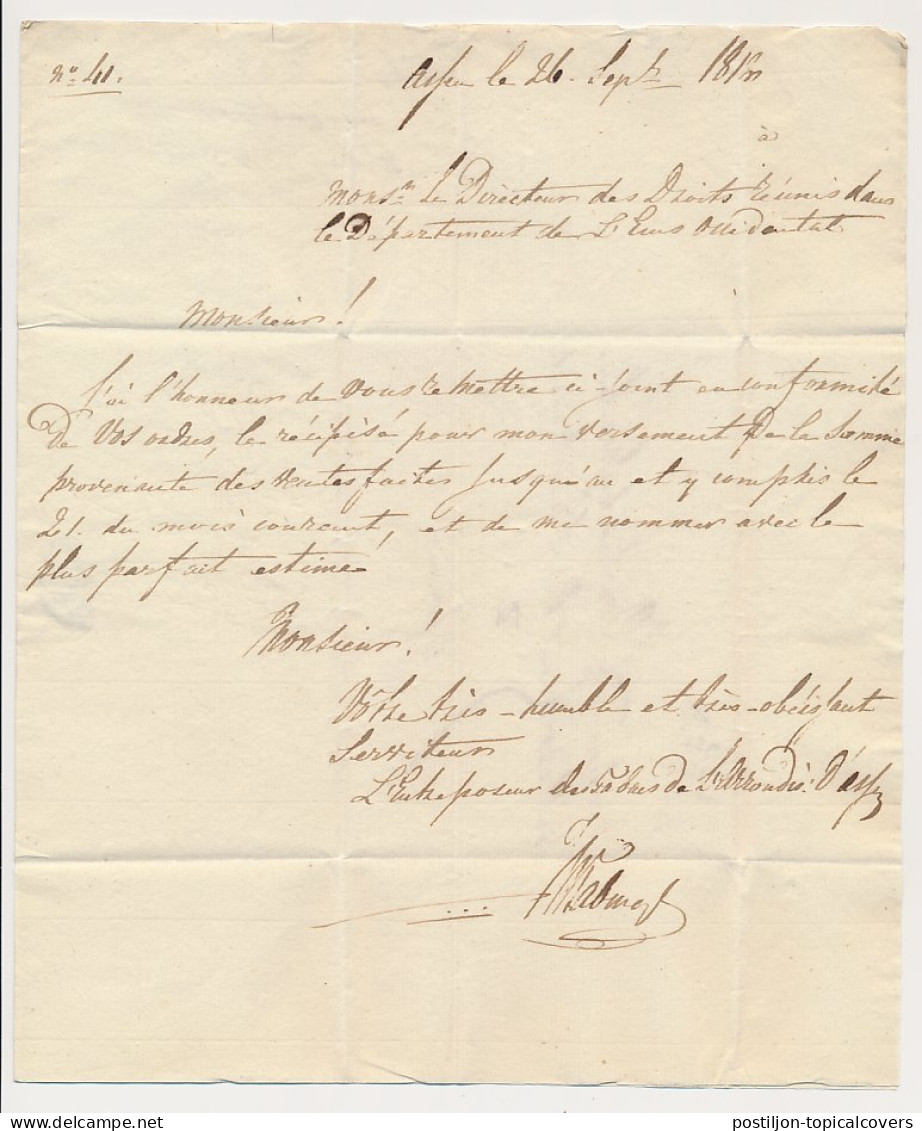 n.o 41.
Assen le 26. Septr. 181
à
Monsr. Le Directeur des Droits réunis dans
le Département de L'Ems Occidental
Monsieur!
J'ai l'honneur de vous remettre ci-joint en conformité
de vos ordres, le récipisé pour mon versement de la somme
provenante des ventes faites jusqu'au et y compris le
21. du mois courant, et de me nommer avec le
plus parfait estime
Monsieur!
Vôtre très-humble et très-obéissant
Serviteur
L'Entreposeur des de L'Arrondis.t d'Assen
postiljon-topicalcovers